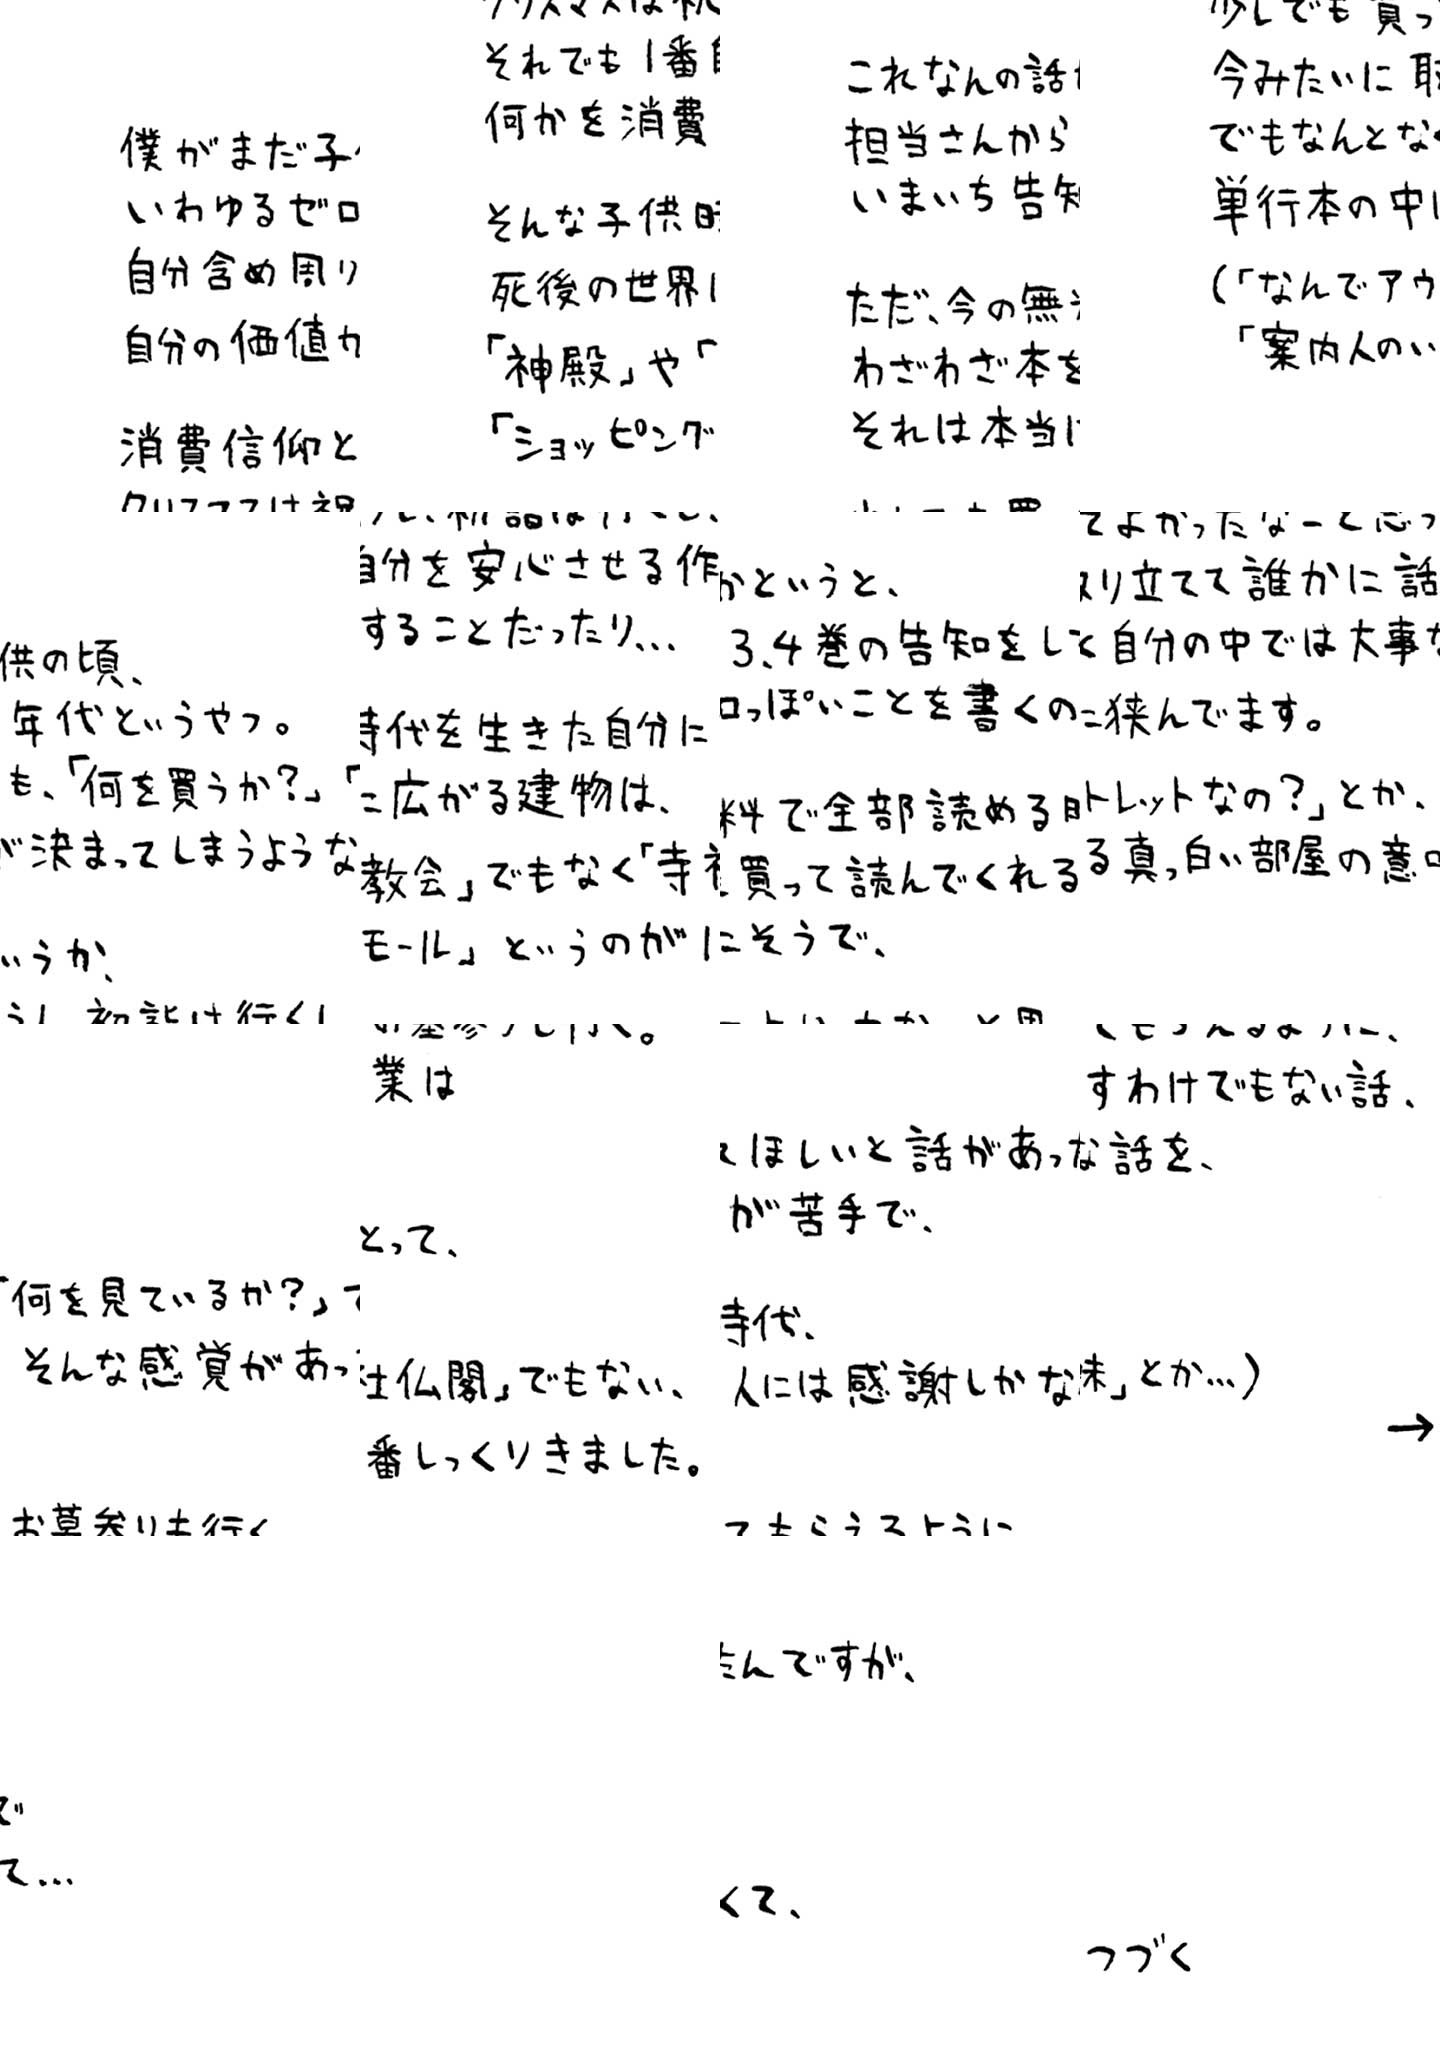 僕がまだ子供の頃、
いわゆるゼロ年代というやつ。
自分含め周りも、「何を買うか?」「何を見ているか?」で
自分の価値が決まってしまうようなそんな感覚があって...
消費信仰というか、
クリスマスは祝うし、初詣は行くし、お墓参りも行く。
それでも1番自分を安心させる作業は
何かを消費することだったり...
そんな子供時代を生きた自分にとって、
死後の世界に広がる建物は、
「神殿」や「教会」でもなく「寺社仏閣」でもない、
「ショッピングモール」というのが1番しっくりきました。
これなんの話かというと、
担当さんから3.4巻の告知をしてほしいと話があったんですが、
いまいち告知っぽいことを書くのが苦手で、
ただ、今の無料で全部読める時代、
わざわざ本を買って読んでくれる人には感謝しかなくて、
それは本当にそうで、
少しでも買ってよかったなーと思ってもらえるように、
今みたいに取り立てて誰かに話すわけでもない話、
でもなんとなく自分の中では大事な話を、
単行本の中に挟んでます。
(「なんでアウトレットなの?」とか、
「案内人のいる真っ白い部屋の意味」とか...)
→
つづく